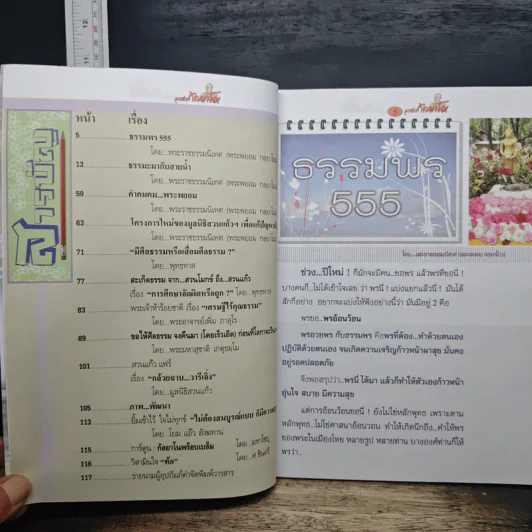 สารบัญ
หน้า เรื่อง
5 ธรรมพร 555
โดย...พระราชธรรมนิเทศ (พระพยอม กลฺยาโณ)
13 ธรรมะมากับสายน้ำ
โดย...พระราชธรรมนิเทศ (พระพยอม กลฺยาโณ)
59 คำคมคม...พระพยอม
โดย...พระราชธรรมนิเทศ (พระพยอม กลฺยาโณ)
63 โครงการใหม่ของมูลนิธิสวนแก้วฯ
โดย...พระราชธรรมนิเทศ (พระพยอม
71 "มีศีลธรรมหรือเสื่อมศีลธรรม ?"
โดย...พุทธทาส
77 สะเก็ดธรรม จาก...สวนโมกข์ ถึง...สวนแก้ว
เรื่อง "การศึกษาจัดผิดหรือถูก ?" โดย พุทธทาส
83 พระเจ้าห้าร้อยชาติ เรื่อง "เศรษฐีไร้คุณธรรม"
โดย...พระอาจารย์เพิ่ม
89 ขอให้ศีลธรรม จงคืนมา (โดยเร็วเถิด)
โดย...พระมหาสุชาติ
101 สวนแก้ว แฟร์
เรื่อง "กล้วยฉาบ...วารีเซิ่ง"
โดย...มูลนิธิสวนแก้ว
105 ภาพ...พัฒนา
113 ยิ้มเข้าไว้ ใจไม่ทุกข์ "ไม่ต้องสมบูรณ์แบบ
โดย... โยม แม้ว สังฆทาน
115 การ์ตูน : กัลยาโนพร้อมเบลิ้ม
116 วิตามินใจ "ท้อ"
117 รายนามผู้อุปถัมภ์ค่าจัดพิมพ์วารสาร
5
ธรรมพร
555
โดย...พระราชธรรมนิเทศ (พระพยอม กลฺยาโณ)
ช่วง...ปีใหม่ ! ก็มักจะมีคน..ขอพร แล้วพรที่ขอนี่ !
บางคนก็..ไม่ได้เข้าใจเลย ว่า พรนี่ ! แบ่งแยกแล้วนี่ ! มันได้
สักกี่อย่าง อยากจะแบ่งให้ฟังอย่างนี้ว่า มันมีอยู่ 2 คือ
พรขอ..พรอ้อนวอน
พรอวยพร กับธรรมพร คือพรที่ต้อง...ทำด้วยตนเอง
ปฏิบัติด้วยตนเอง จนเกิดความเจริญก้าวหน้าผาสุข มั่นคง
อยู่รอดปลอดภัย
จึงพอสรุปว่า...พรนี่ ได้มา แล้วก็ทำให้ตัวเองก้าวหน้า
อุ่นใจ สบาย มีความสุข
แต่การอ้อนวอนขอนี่ ! ยังไม่ใช่หลักพุทธ เพราะตาม
หลักพุทธ..ไม่ใช่ศาสนาอ้อนวอน ทำให้เกิดนึกถึง...คำให้พร
ของพระในเมืองไทย หลายรูป หลายท่าน บางองค์ท่านก็ให้
พรว่า..